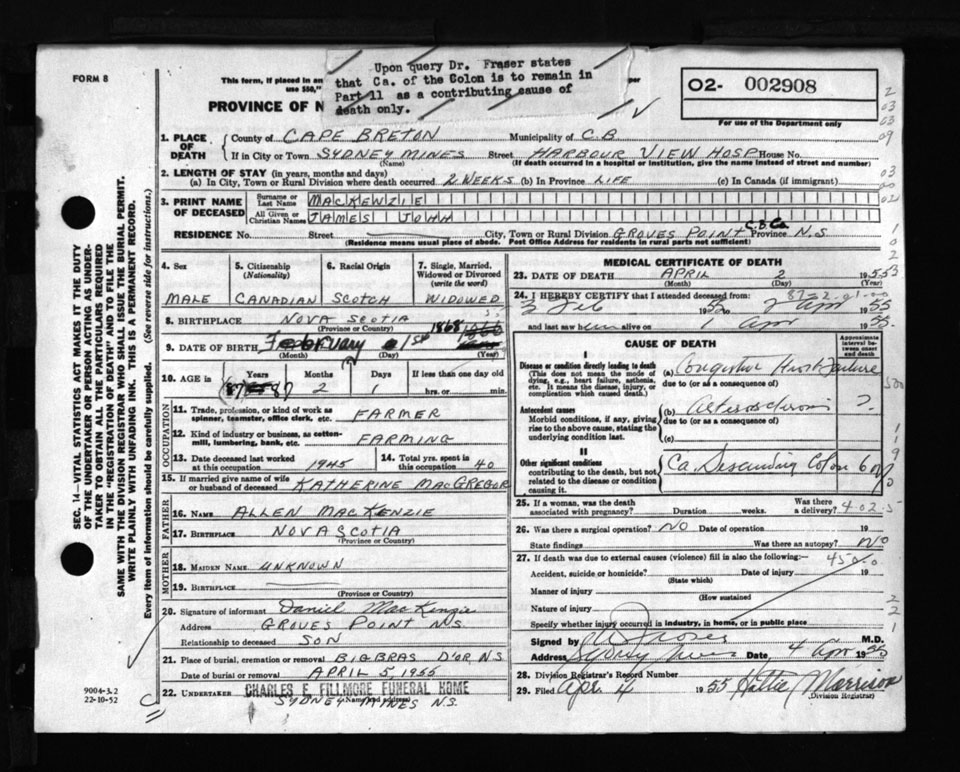 FORM 8
Upon query Dr. Fraser states
that Ca. of the Colon is to remain in
Part 11 as a contributing cause of
death only.
This form, if placed in an
per
use $50,"
PROVINCE OF N
O2- 002908
For use of the Department only
1. PLACE OF DEATH
County of CAPE BRETON Municipality of C.B
If in City or Town SYDNEY MINES Street HARBOUR VIEW HOSP House No.
(Name) (If death occurred in a hospital or institution, give the name instead of street and number)
2. LENGTH OF STAY (in years, months and days)
(a) In City, Town or Rural Division where death occurred 2 WEEKS (b) In Province LIFE (c) In Canada (if immigrant)
3. PRINT NAME OF DECEASED
Surname or Last Name MACKENZIE
All Given or Christian Names JAMES JOHN
C.B. Co.
RESIDENCE No. Street City, Town or Rural Division GROVES POINT Province N.S
(Residence means usual place of abode. Post Office Address for residents in rural parts not sufficient)
4. Sex
MALE
5. Citizenship (Nationality)
CANADIAN
6. Racial Origin
SCOTCH
7. Single, Married, Widowed or Divorced (write the word)
WIDOWED
8. BIRTHPLACE NOVA SCOTIA
(Province or Country)
9. DATE OF BIRTH February 1st 1868
(Month) (Day) (Year)
10. AGE in Years Months Days If less than one day old
87 2 hrs. or min.
OCCUPATION
11. Trade, profession, or kind of work as spinner, teamster, office clerk, etc. FARMER
12. Kind of industry or business, as cotton-mill, lumbering, bank, etc. FARMING
13. Date deceased last worked at this occupation 1945
14. Total yrs. spent in this occupation 40
15. If married give name of wife or husband of deceased KATHERINE MACGREGOR
FATHER
16. NAME ALLEN MACKENZIE
17. BIRTHPLACE NOVA SCOTIA
(Province or Country)
MOTHER
18. MAIDEN NAME UNKNOWN
19. BIRTHPLACE
(Province or Country)
20. Signature of informant Daniel MacKenzie
Address GROVES POINT N.S.
Relationship to deceased SON
21. Place of burial, cremation or removal BIG BRAS D'OR N.S
Date of burial or removal APRIL 5, 1955
22. UNDERTAKER CHARLES E. FILLMORE FUNERAL HOME
(Name and Address)
SYDNEY MINES N.S.
MEDICAL CERTIFICATE OF DEATH
23. DATE OF DEATH APRIL 2 1955
(Month) (Day) (Year)
24. I HEREBY CERTIFY that I attended deceased from:
3 Feb 1955 to 2 Apr 1955
and last saw him alive on 1 Apr 1955
CAUSE OF DEATH
Approximate interval between onset and death
I
Disease or condition directly leading to death
(This does not mean the mode of dying, e.g., heart failure, asthenia, etc. It means the disease, injury, or complication which caused death.)
(a) Congestive Heart Failure
due to (or as a consequence of)
Antecedent causes
Morbid conditions, if any, giving rise to the above cause, stating the underlying condition last.
(b) Arterosclerosis ?
due to (or as a consequence of)
(c)
II
Other significant conditions
contributing to the death, but not related to the disease or condition causing it.
Ca. Descending Colon 6 m
25. If a woman, was the death associated with pregnancy? Duration weeks. Was there a delivery?
26. Was there a surgical operation? NO Date of operation 19
State findings Was there an autopsy? NO
27. If death was due to external causes (violence) fill in also the following:—
Accident, suicide or homicide? Date of injury 19
(State which)
Manner of injury
(How sustained
Nature of injury
Specify whether injury occurred in industry, in home, or in public place
Signed by M.D.
Address Sydney Mines Date, 4 Apr 1955
28. Division Registrar's Record Number
29. Filed Apr. 4 1955 Hattie Morrison
(Division Registrar)
SEC. 14—VITAL STATISTICS ACT MAKES IT THE DUTY
OF THE UNDERTAKER OR PERSON ACTING AS UNDER-
TAKER TO OBTAIN ALL THE PARTICULARS REQUIRED
IN THE "REGISTRATION OF DEATH" AND TO FILE THE
SAME WITH THE DIVISION REGISTRAR WHO SHALL ISSUE THE BURIAL PERMIT.
WRITE PLAINLY WITH UNFADING INK. THIS IS A PERMANENT RECORD.
Every item of information should be carefully supplied. (See reverse side for instructions.)
9004-3.2
22-10-52